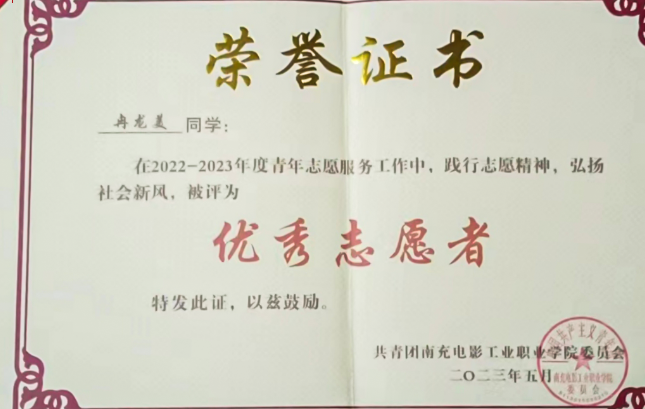 荣誉证书
冉龙美 同学：
在2022-2023年度青年志愿服务工作中，践行志愿精神，弘扬
社会新风，被评为
优秀志愿者
特发此证，以兹鼓励。
共青团南充电影工业职业学院委员会
二〇二三年五月
南充电影工业职业学院
委员会